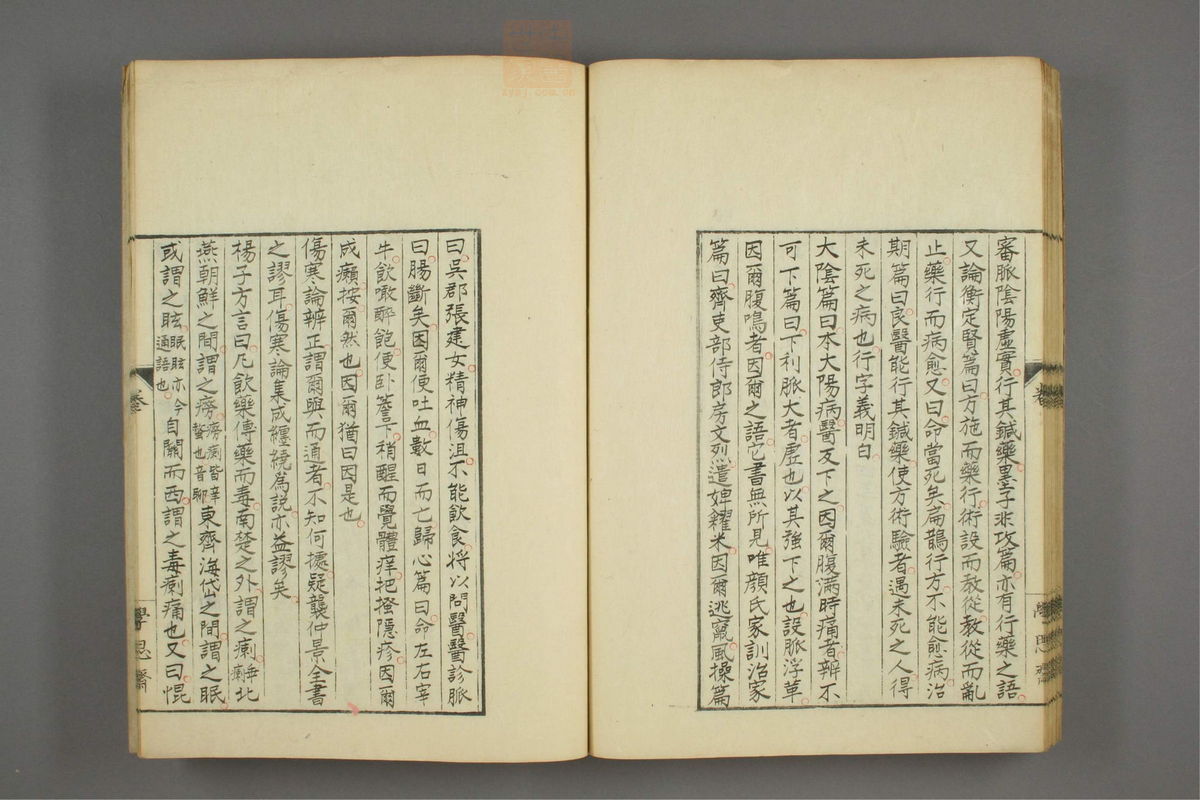 審脈陰陽虛實行其鍼藥墨子非攻篇亦有行藥之語
又論衡定賢篇曰方施而藥行術設而教從教從而亂
止藥行而病愈又曰命當死矣扁鵲行方不能愈病治
期篇曰良醫能行其鍼藥使方術驗者遇未死之人得
未死之病也行字義明白
大陰篇曰本大陽病醫反下之因爾腹滿時痛者辨不
可下篇曰下利脈大者虛也以其強下之也設脈浮革
因爾腹鳴者因爾之語它書無所見唯顏氏家訓治家
篇曰齊吏部侍郎房文烈遣婢糴米因爾逃竄風操篇
曰吳郡張建女精神傷沮不能飲食將以問醫醫診脈
曰腸斷矣因爾便吐血數日而亡歸心篇曰命左右宰
牛飲噉醉飽便臥簷下稍醒而覺體痒把搔隱疹因爾
成癩按爾然也因爾猶曰因是也
傷寒論辨正謂爾與而通者不知何據疑襲仲景全書
之謬耳傷寒論集成纏繞為説亦益謬矣
楊子方言曰凡飲藥傅藥而毒南楚之外謂之瘌癆北
燕朝鮮之間謂之癆癆瘌皆辛螫也音聊東齊海岱之間謂之眠
或謂之眩眠眩亦今通語也自關而西謂之毒瘌痛也又曰惃
學思齋